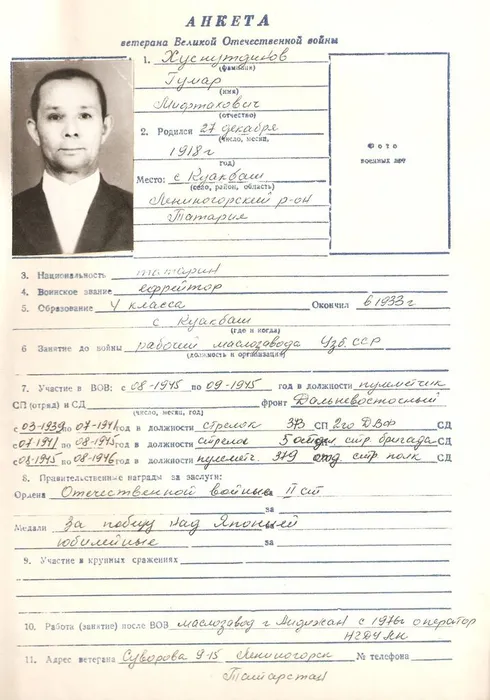 АНКЕТА
ветерана Великой Отечественной войны
1. Хуснутдинов
(фамилия)
Гумар
(имя)
Мифтахович
(отчество)
2. Родился 27 декабря
(число, месяц,
1918 г
год)
Место: с Куакбаш
(село, район, область)
Лениногорский р-он
Татария
Фото
военных лет
3. Национальность татарин
4. Воинское звание ефрейтор
5. Образование 4 класса Окончил в 1933 г
с Куакбаш
(где и когда)
6 Занятие до войны рабочий маслозавода Узб. ССР
(должность и организация)
7. Участие в ВОВ: с 08-1945 по 09-1945 год в должности пулеметчик
СП (отряд) и СД фронт Дальневосточный
(число, месяц, год)
с 03-1939 по 07-1941 год в должности стрелок 373 СП 2го ДВФ СД
с 07-1941 по 08-1945 год в должности стрелок 5 отдел. стр. бригада СД
с 08-1945 по 08-1946 год в должности пулемет. 379 отд. стр полк СД
8. Правительственные награды за заслуги:
Ордена Отечественной войны II ст
за
Медали За победу над Японией
юбилейные за
9. Участие в крупных сражениях
10. Работа (занятие) после ВОВ маслозавод г Андижан с 1976г оператор
НГДУ ЛН
11. Адрес ветерана Суворова 9-15 Лениногорск № телефона
Татарстан